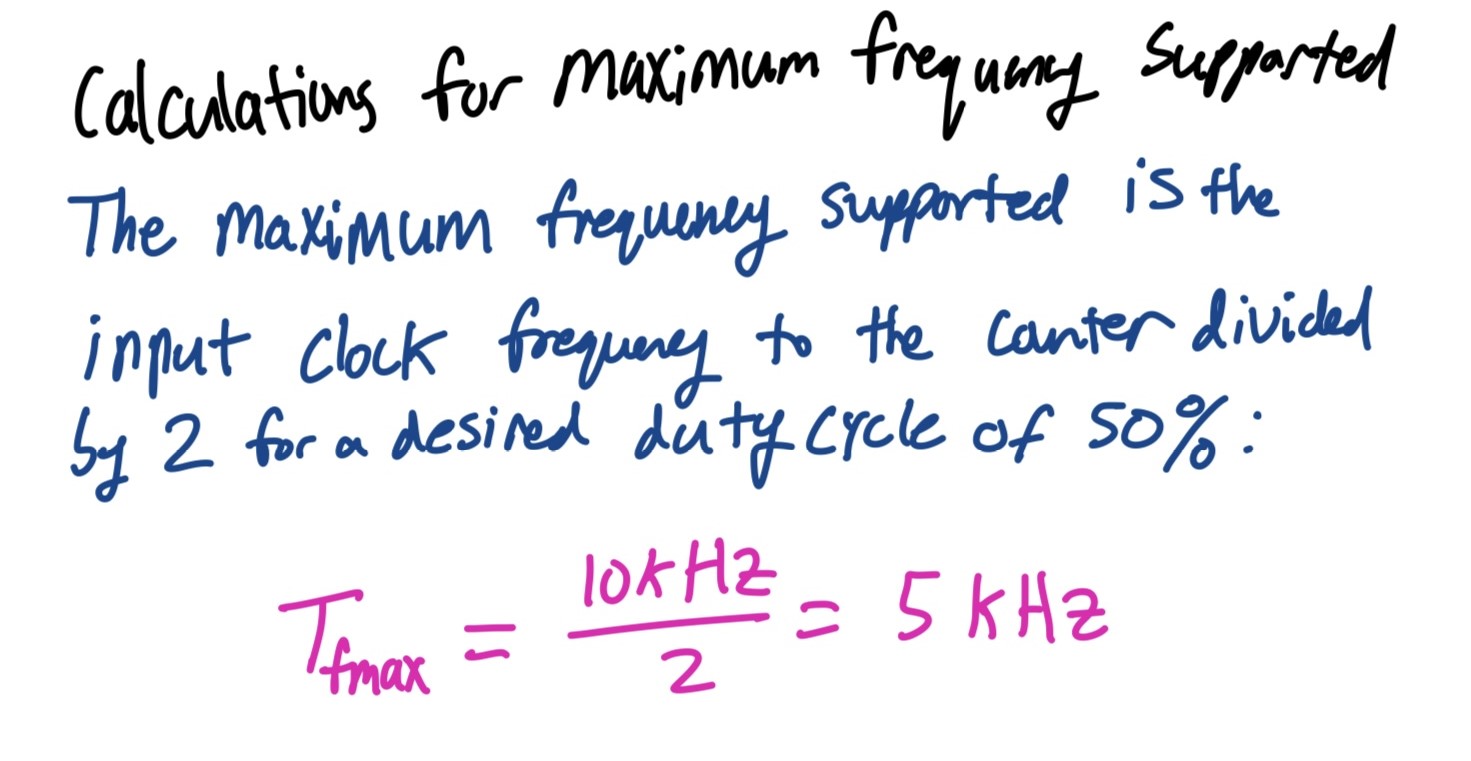 Calculations for maximum frequency supported
The maximum frequency supported is the
input clock frequency to the counter divided
by 2 for a desired duty cycle of 50%:
T_fmax = 10kHz/2 = 5 kHz